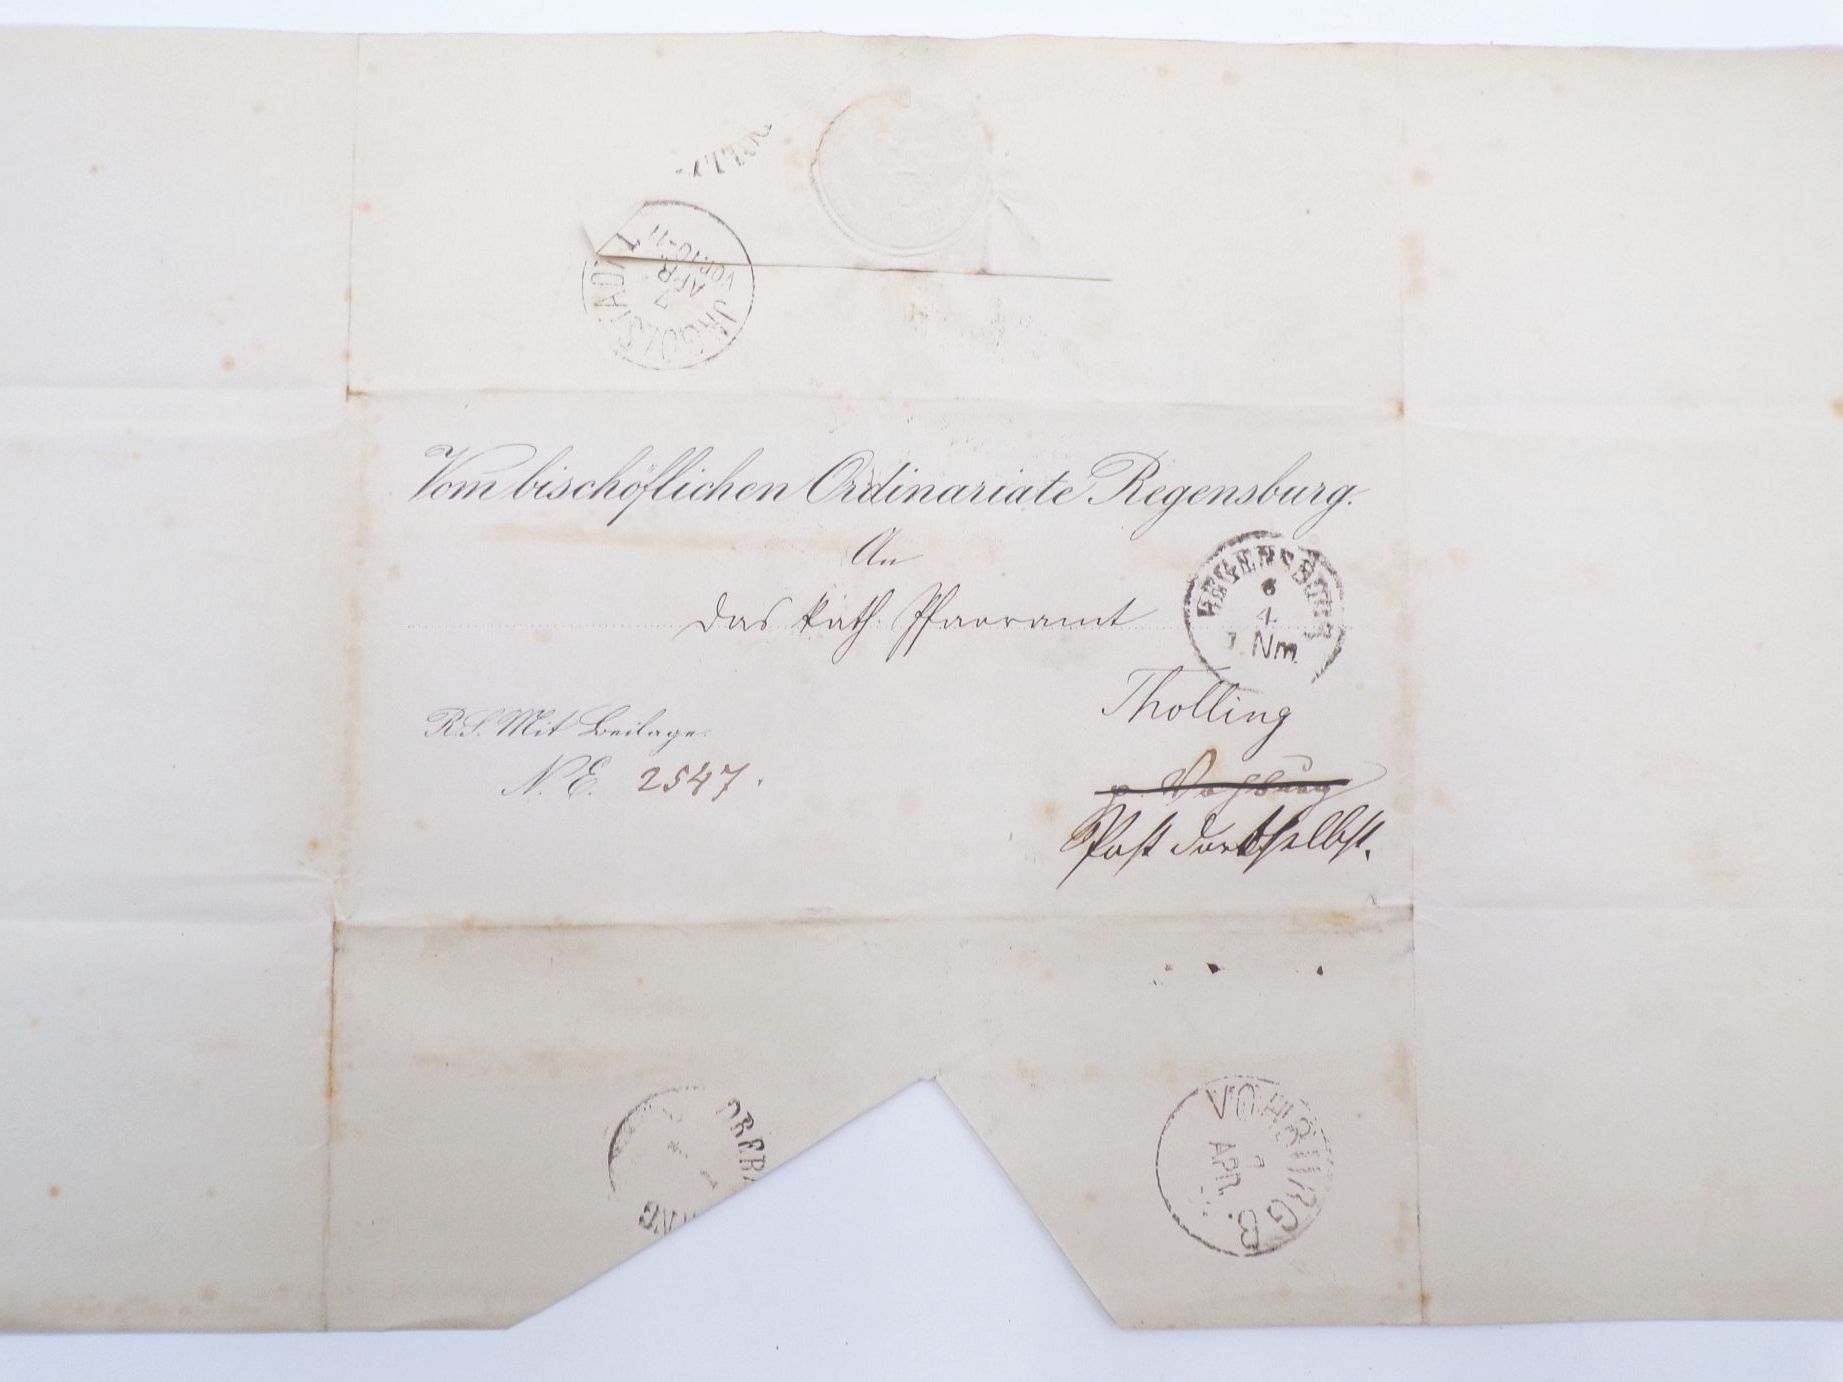 JNGOLSTADT I
7
APR
VOR.10-11
Vom bischöflichen Ordinariate Regensburg.
An
das kath. Pfarramt
REGENSBURG
6
4.
Nm.
Tholling
R.S. Mit Beilage.
N.E. 2547.
p. Vohburg
Post dortselbst.
VOHBURG B.
7
APR.